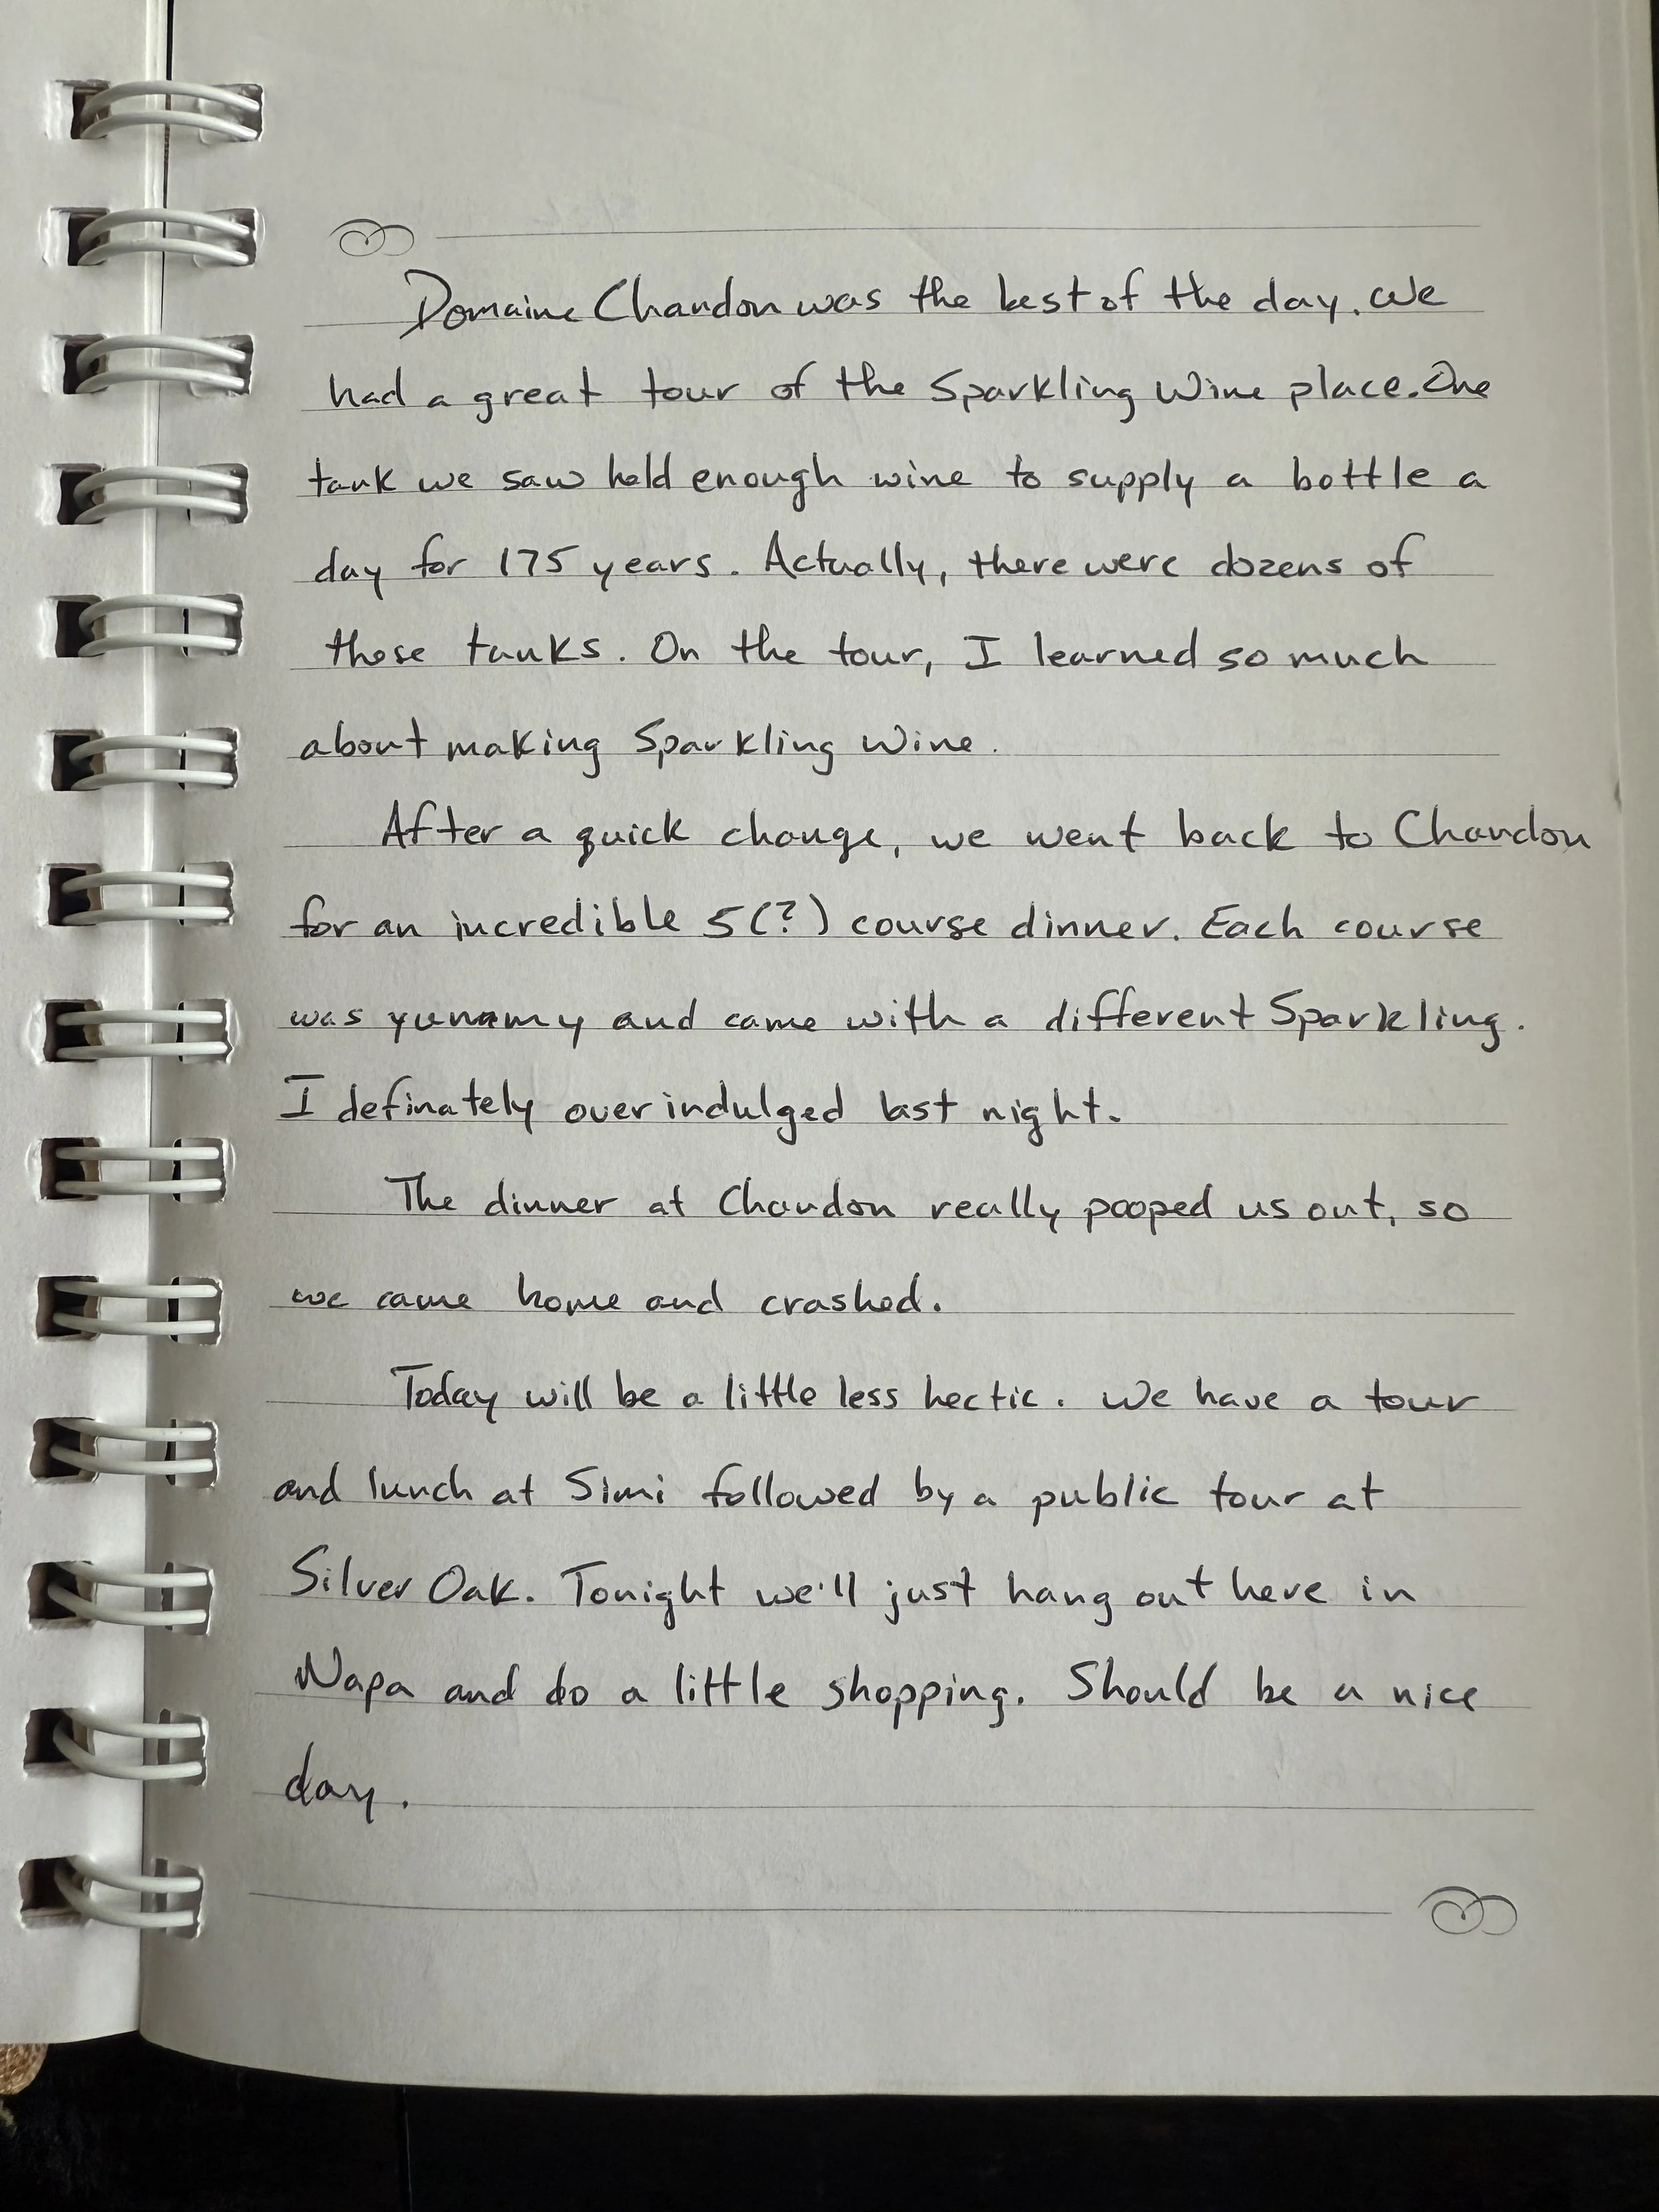 Domaine Chandon was the best of the day. We
had a great tour of the Sparkling Wine place. One
tank we saw held enough wine to supply a bottle a
day for 175 years. Actually, there were dozens of
those tanks. On the tour, I learned so much
about making Sparkling Wine.
After a quick change, we went back to Chandon
for an incredible 5(?) course dinner. Each course
was yummy and came with a different Sparkling.
I definately over indulged last night.
The dinner at Chandon really pooped us out, so
we came home and crashed.
Today will be a little less hectic. We have a tour
and lunch at Simi followed by a public tour at
Silver Oak. Tonight we'll just hang out here in
Napa and do a little shopping. Should be a nice
day.